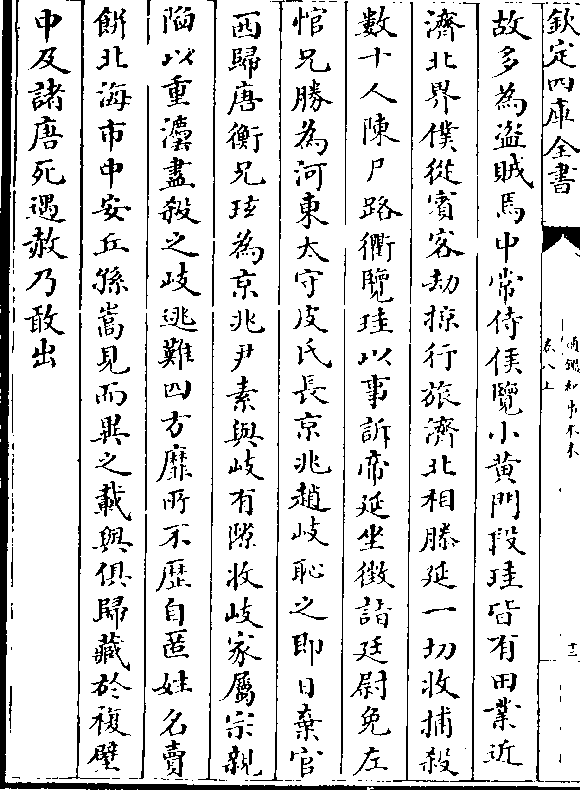 欽定四庫全書
故多為盜賊焉中常侍侯覽小黄門段珪皆有田業近
濟北界僕從賓客劫掠行旅濟北相滕延一切收捕殺
數十人陳尸路衢覽珪以事訴帝延坐徵詣廷尉免左
悺兄勝為河東太守皮氏長京兆趙岐恥之即日棄官
西歸唐衡兄玹為京兆尹素與岐有隙收岐家屬宗親
陷以重灋盡殺之岐逃難四方靡所不歴自匿姓名賣
餅北海市中安丘孫嵩見而異之載與俱歸藏於複壁
中及諸唐死遇赦乃敢出